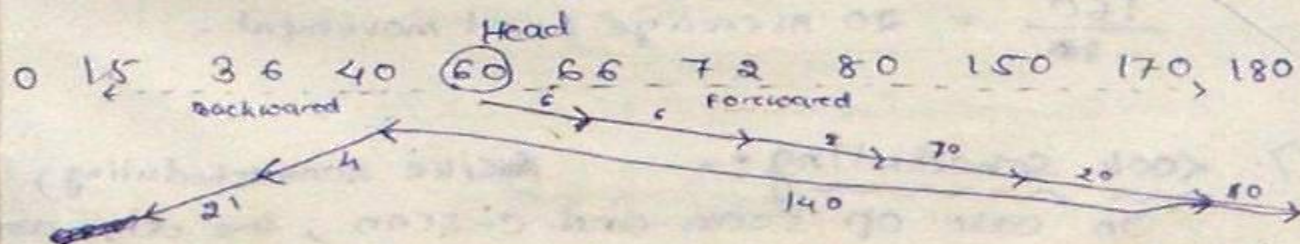 Head
0 15 36 40 60 66 72 80 150 170 180
Backwared Forwared
6 6 8 70 20 10
4 140
21